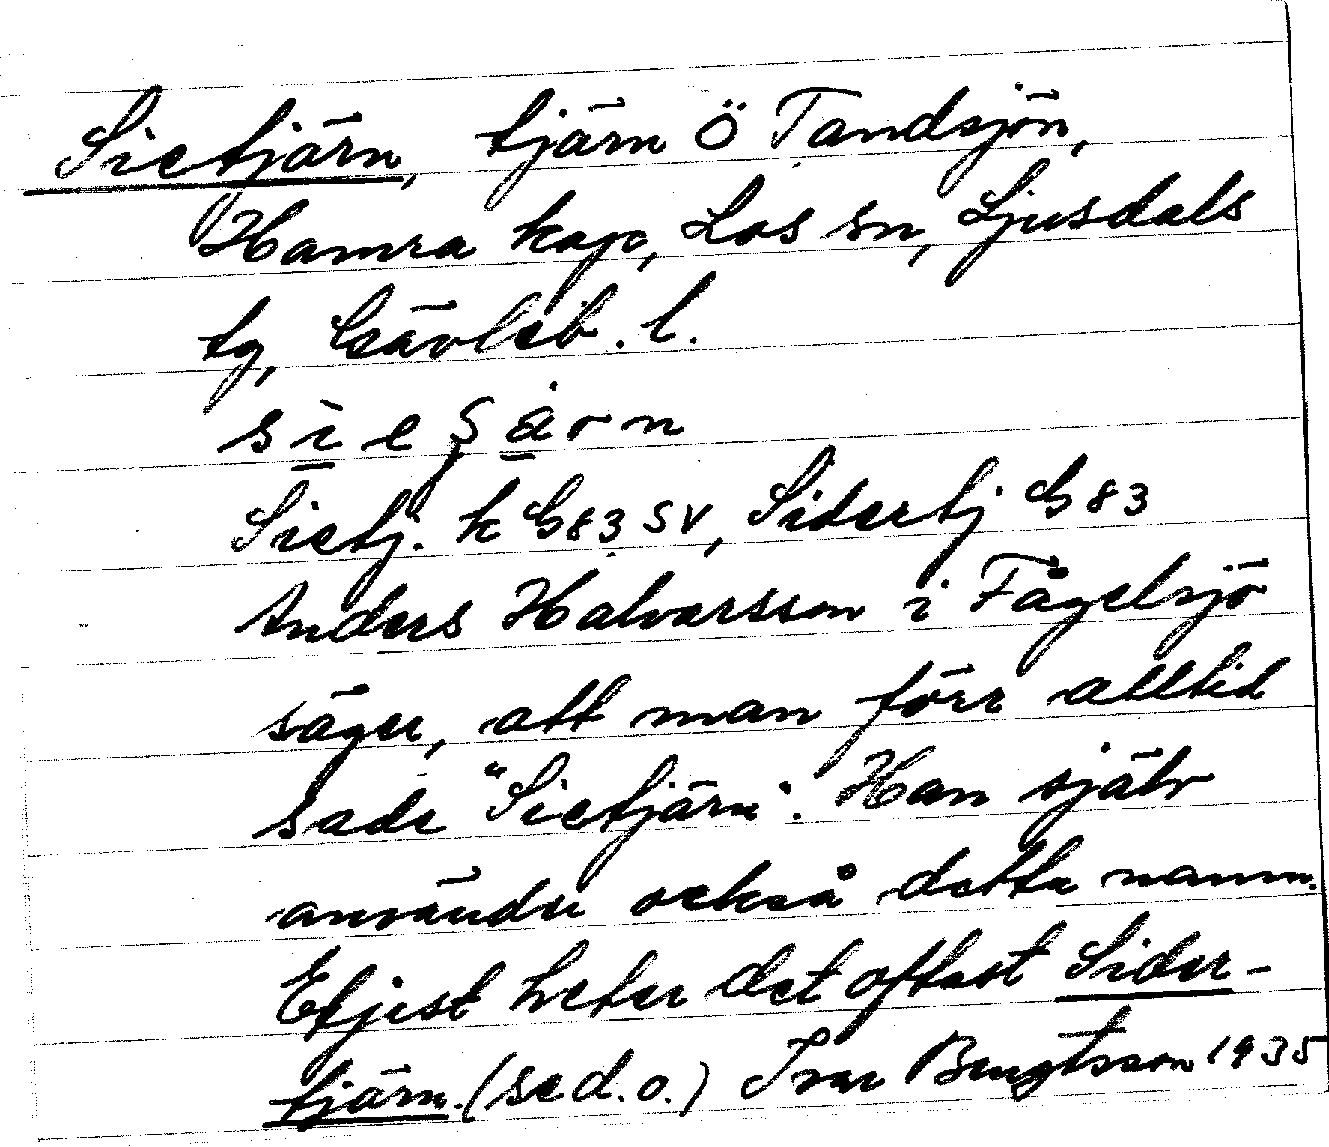 Sietjärn, tjärn Ö Tandsjön,
Hamra kap, Los sn, Ljusdals
tg, Gävleb. l.
Sietj. k G83 SV, Sidertj G83
Anders Halvarsson i Fågelsjö
säger, att man förr alltid
sade "Sietjärn". Han själv
använder också detta namn.
Eljest heter det oftast Sider-
tjärn. (se d.o.) Ivar Bengtsson 1935